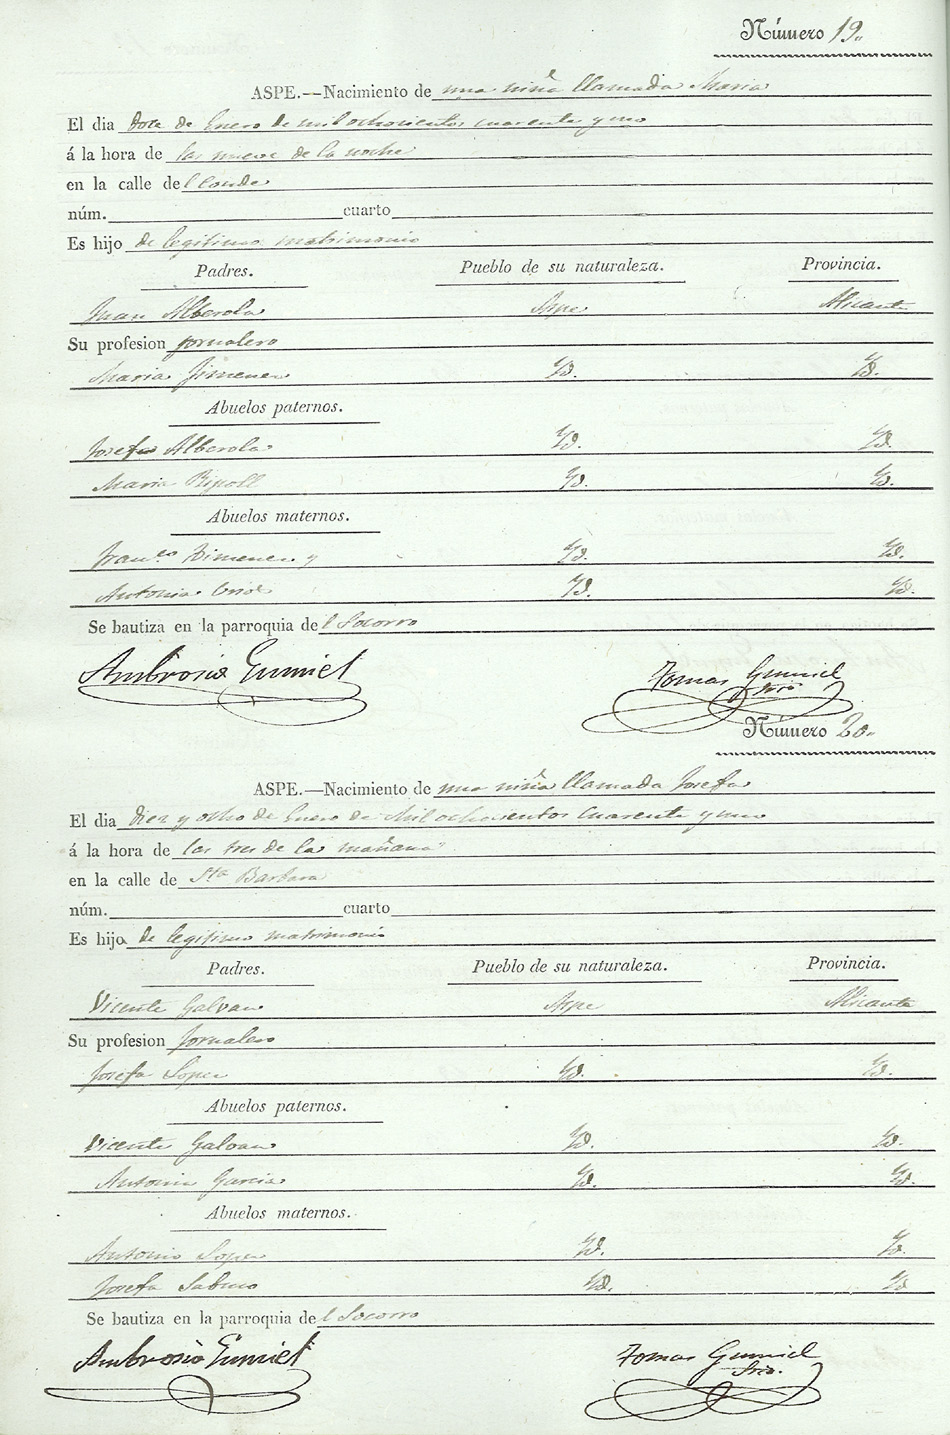 Número 19.
ASPE.—Nacimiento de una niña llamada Maria
El dia doce de Enero de mil ochocientos cuarenta y uno
á la hora de las nueve de la noche
en la calle del Conde
núm. cuarto
Es hijo de legitimo matrimonio
Padres. Pueblo de su naturaleza. Provincia.
Juan Alberola Aspe Alicante
Su profesion jornalero
Maria Jimenez Yd. Yd.
Abuelos paternos.
Josefo Alberola Yd. Yd.
Maria Ripoll Yd. Yd.
Abuelos maternos.
Fran.co Ximenez y Yd. Yd.
Antonia Yd. Yd.
Se bautiza en la parroquia del Socorro
Ambrosio Gumiel Tomas Gumiel
Srio
Número 20.
ASPE.—Nacimiento de una niña llamada Josefa
El dia diez y ocho de Enero de Mil ochocientos cuarenta y uno
á la hora de las tres de la mañana
en la calle de Sta Barbara
núm. cuarto
Es hija de legitimo matrimonio
Padres. Pueblo de su naturaleza. Provincia.
Vicente Galvan Aspe Alicante
Su profesion Jornalero
Josefa Lopez Yd. Yd.
Abuelos paternos.
Vicente Galvan Yd. Yd.
Antonia Garcia Yd. Yd.
Abuelos maternos.
Antonio Lopez Yd. Yd.
Josefa Sabuco Yd. Yd
Se bautiza en la parroquia del Socorro
Ambrosio Gumiel Tomas Gumiel
Srio.